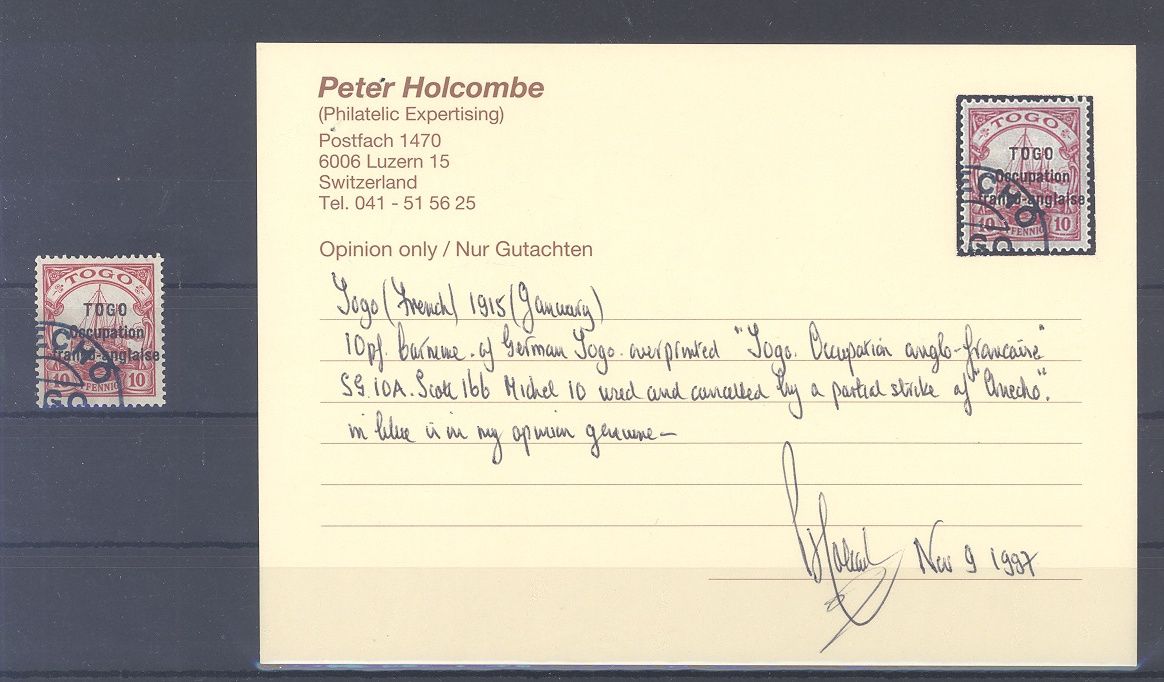 Peter Holcombe
(Philatelic Expertising)
Postfach 1470
6006 Luzern 15
Switzerland
Tel. 041 - 51 56 25
Opinion only / Nur Gutachten
TOGO
TOGO
Occupation
franco-anglaise
CHO
10 PFENNIG 10
GO
Togo (French) 1915 (January)
10pf. Carmine. of German Togo. overprinted "Togo. Occupation anglo-francaise"
SG. 10A. Scott 166 Michel 10 used and cancelled by a partial strike of "Anecho".
in blue is in my opinion genuine—
Nov 9 1997
TOGO
TOGO
Occupation
franco-anglaise
CHO
10 PFENNIG 10
GO